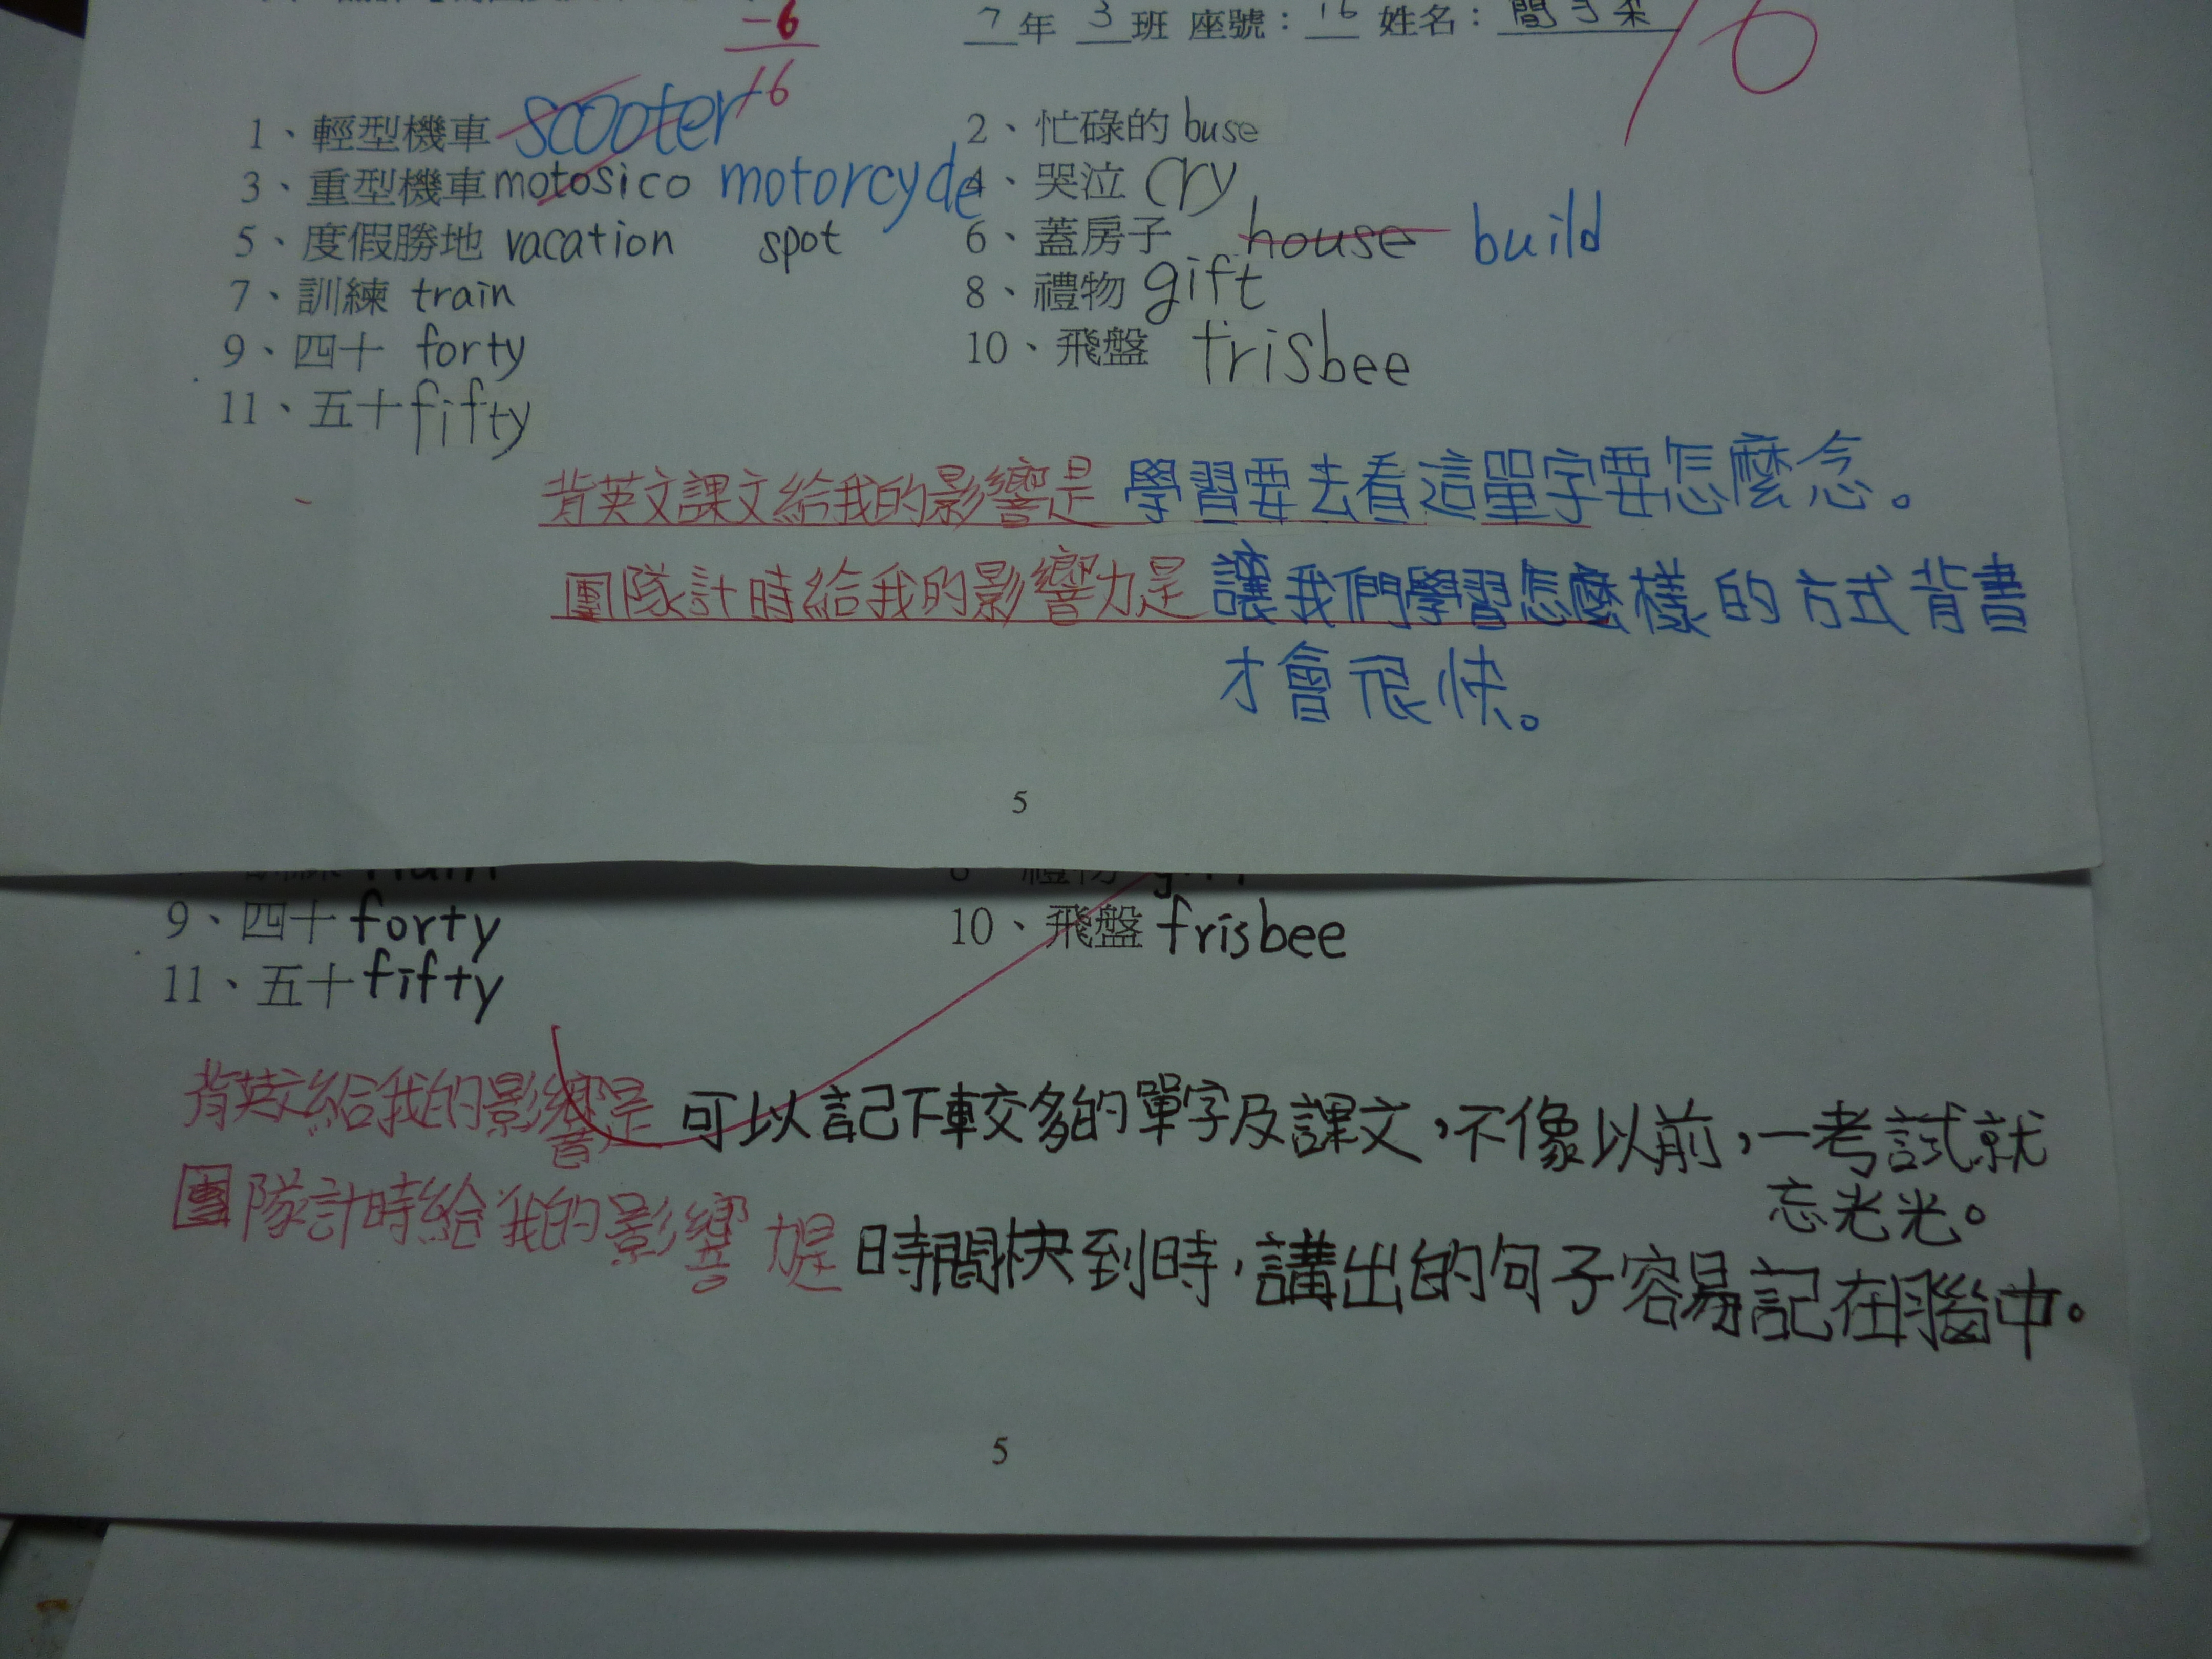 -6
7年 3班 座號：16 姓名：
16
1、輕型機車 scooter
2、忙碌的 buse
3、重型機車 motosico motorcycle
4、哭泣 cry
5、度假勝地 vacation spot
6、蓋房子 house build
7、訓練 train
8、禮物 gift
9、四十 forty
10、飛盤 frisbee
11、五十 fifty
背英文課文給我的影響是 學習要去看這單字要怎麼念。
團隊計時給我的影響力是 讓我們學習怎麼樣的方式背書
才會很快。
5
9、四十 forty
10、飛盤 frisbee
11、五十 fifty
背英文給我的影響是 可以記下較多的單字及課文，不像以前，一考試就
忘光光。
團隊計時給我的影響力是 時間快到時，講出的句子容易記在腦中。
5